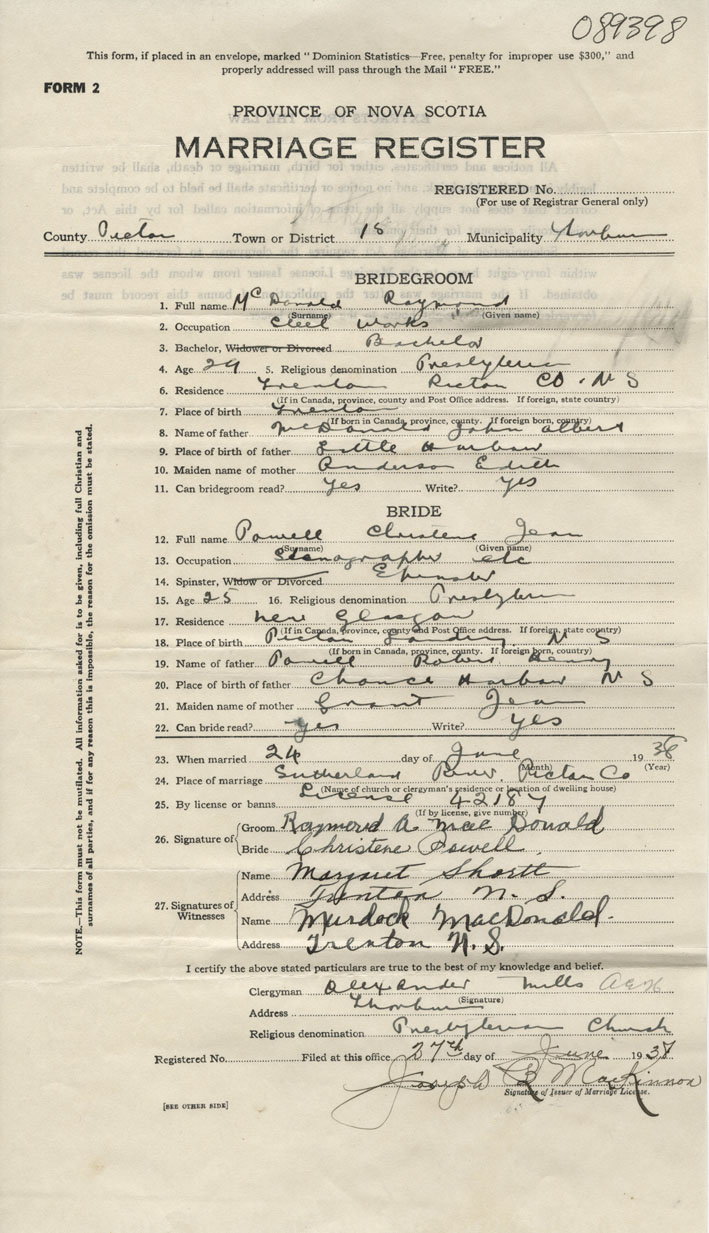 089398
This form, if placed in an envelope, marked " Dominion Statistics—Free, penalty for improper use $300," and
properly addressed will pass through the Mail "FREE."
FORM 2
PROVINCE OF NOVA SCOTIA
MARRIAGE REGISTER
REGISTERED No.
(For use of Registrar General only)
County Pictou Town or District 18 Municipality Thorburn
BRIDEGROOM
1. Full name McDonald Raymond
(Surname) (Given name)
2. Occupation Steel Works
3. Bachelor, Widower or Divorced Bachelor
4. Age 29 5. Religious denomination Presbyterian
6. Residence Trenton Pictou CO. N S
(If in Canada, province, county and Post Office address. If foreign, state country)
7. Place of birth Trenton
(If born in Canada, province, county. If foreign born, country)
8. Name of father McDonald John Albert
9. Place of birth of father Little Harbour
10. Maiden name of mother Anderson Edith
11. Can bridegroom read? yes Write? yes
BRIDE
12. Full name Powell Christene Jean
(Surname) (Given name)
13. Occupation Stenographer etc
14. Spinster, Widow or Divorced
15. Age 25 16. Religious denomination Presbyterian
17. Residence New Glasgow
(If in Canada, province, county and Post Office address. If foreign, state country)
18. Place of birth Pictou Landing N S
(If born in Canada, province, county. If foreign born, country)
19. Name of father Powell Robert Henry
20. Place of birth of father Chance Harbour N S
21. Maiden name of mother Grant Jean
22. Can bride read? yes Write? yes
23. When married 24 day of June 1938
(Month) (Year)
24. Place of marriage Sutherland River, Pictou Co
(Name of church or clergyman's residence or location of dwelling house)
25. By license or banns License 42187
(If by license, give number)
26. Signature of Groom Raymond A MacDonald
Bride Christene Powell
27. Signatures of Witnesses
Name Margaret Shortt
Address Trenton N.S.
Name Murdock MacDonald.
Address Trenton N.S.
I certify the above stated particulars are true to the best of my knowledge and belief.
Clergyman Alexander Mills
(Signature)
Address Thorburn
Religious denomination Presbyterian Church
Registered No. Filed at this office 27th day of June 1938
Joseph B MacKinnon
Signature of Issuer of Marriage License.
[SEE OTHER SIDE]
NOTE.—This form must not be mutilated. All information asked for is to be given, including full Christian and
surnames of all parties, and if for any reason this is impossible, the reason for the omission must be stated.